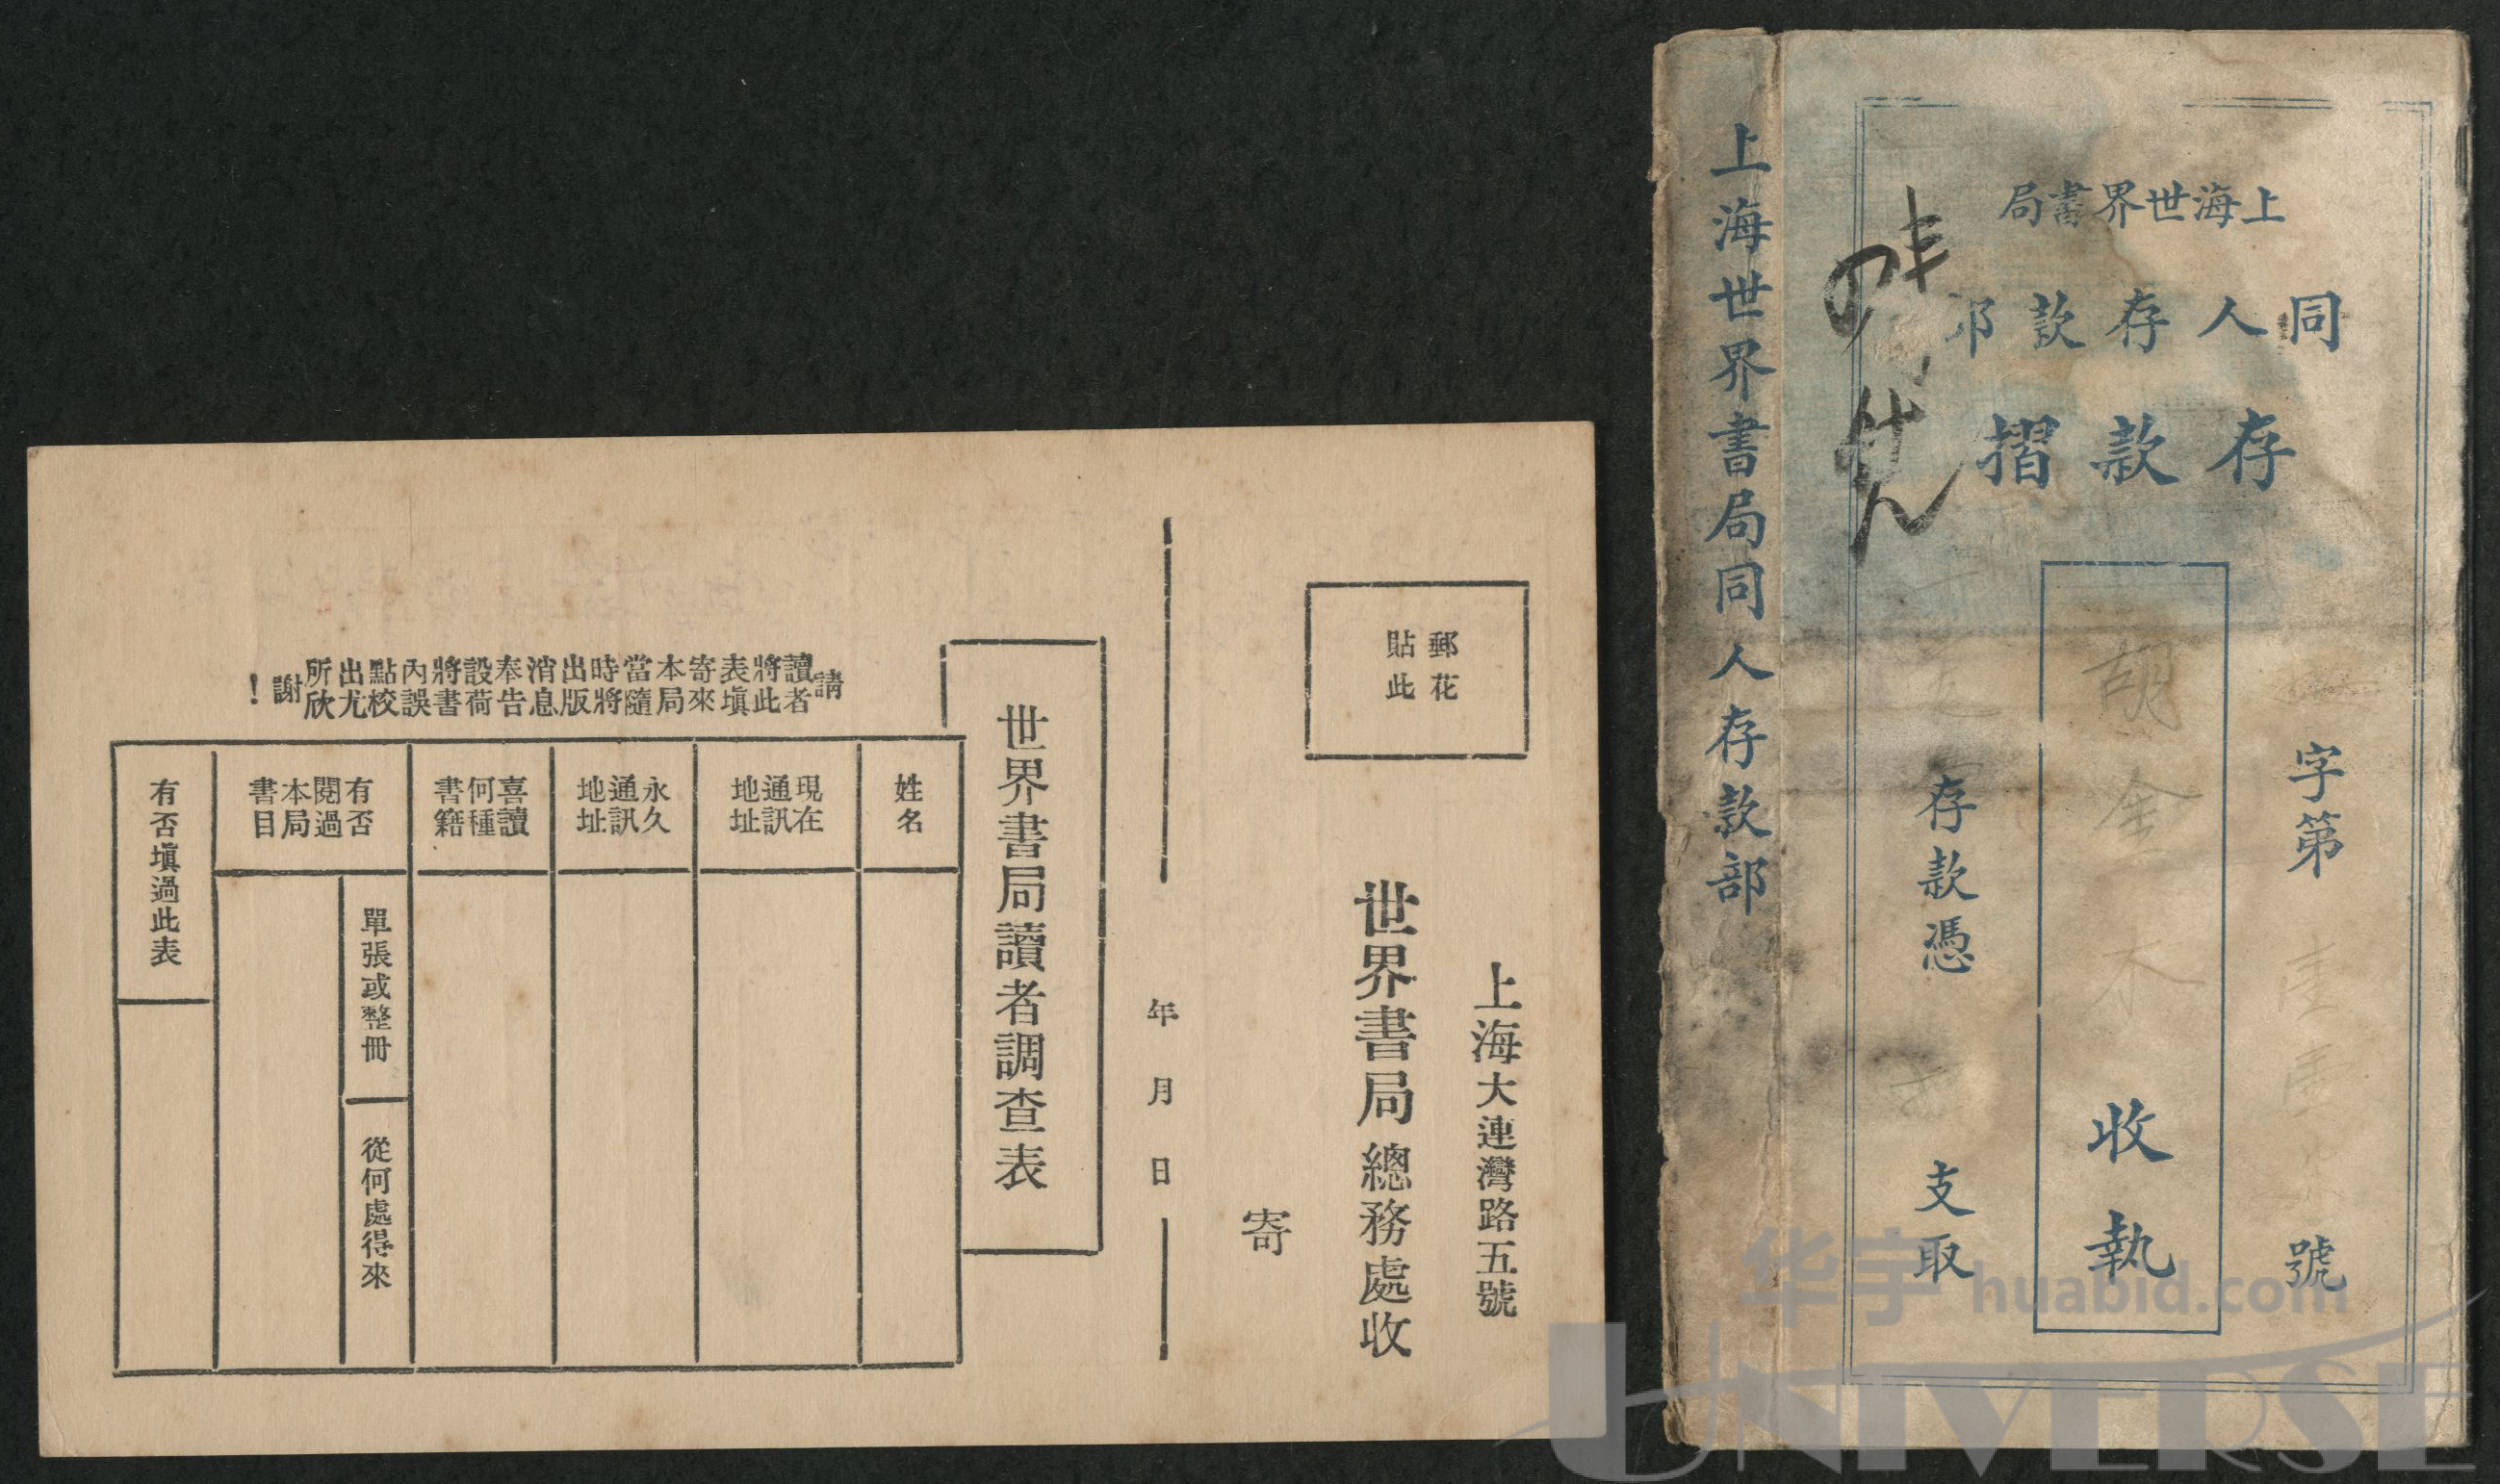 郵花
貼此
上海大連灣路五號
世界書局總務處收
寄
年 月 日
世界書局讀者調查表
請讀者將此表填寄來本局當隨時將出版消息奉告設荷將書內誤點校出尤所欣謝!
姓名
現在通訊地址
永久通訊地址
喜讀何種書籍
有否閱過本局書目
單張或整冊
從何處得來
有否填過此表
上海世界書局
同人存款部
存款摺
字第
號
胡金木
收執
存款憑
支取
上海世界書局同人存款部
华宇 huabid.com
UNIVERSE